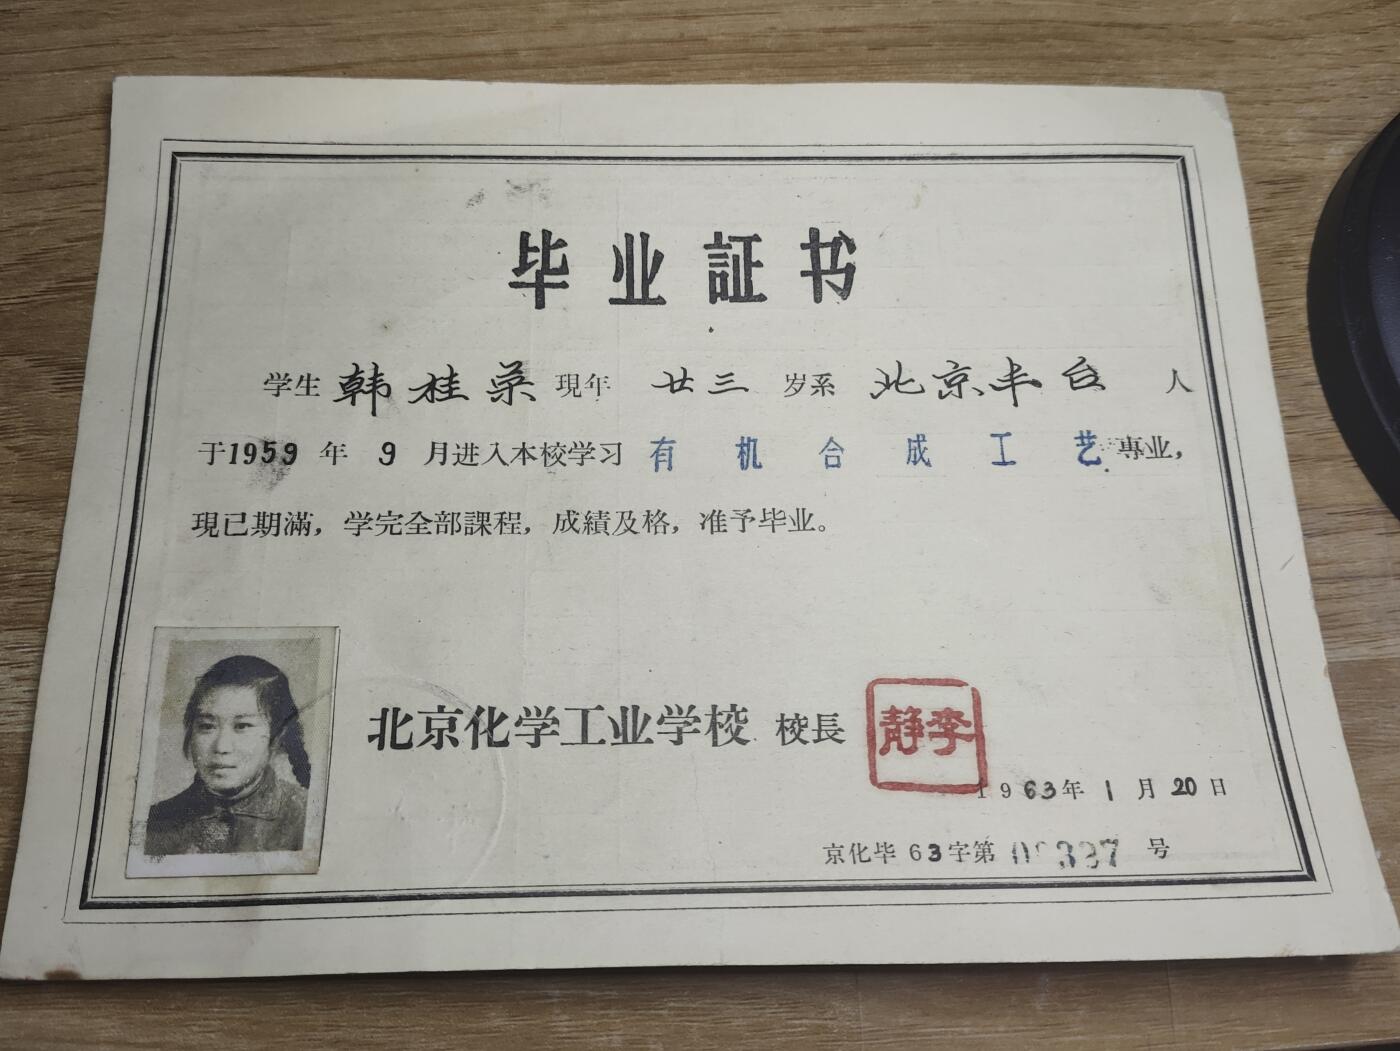 毕业証书
学生 韩桂荣 現年 廿三 岁系 北京丰台 人
于1959年9月进入本校学习有机合成工艺專业，
現已期滿，学完全部課程，成績及格，准予毕业。
北京化学工业学校 校長 李静
1963年1月20日
京化毕63字第 号